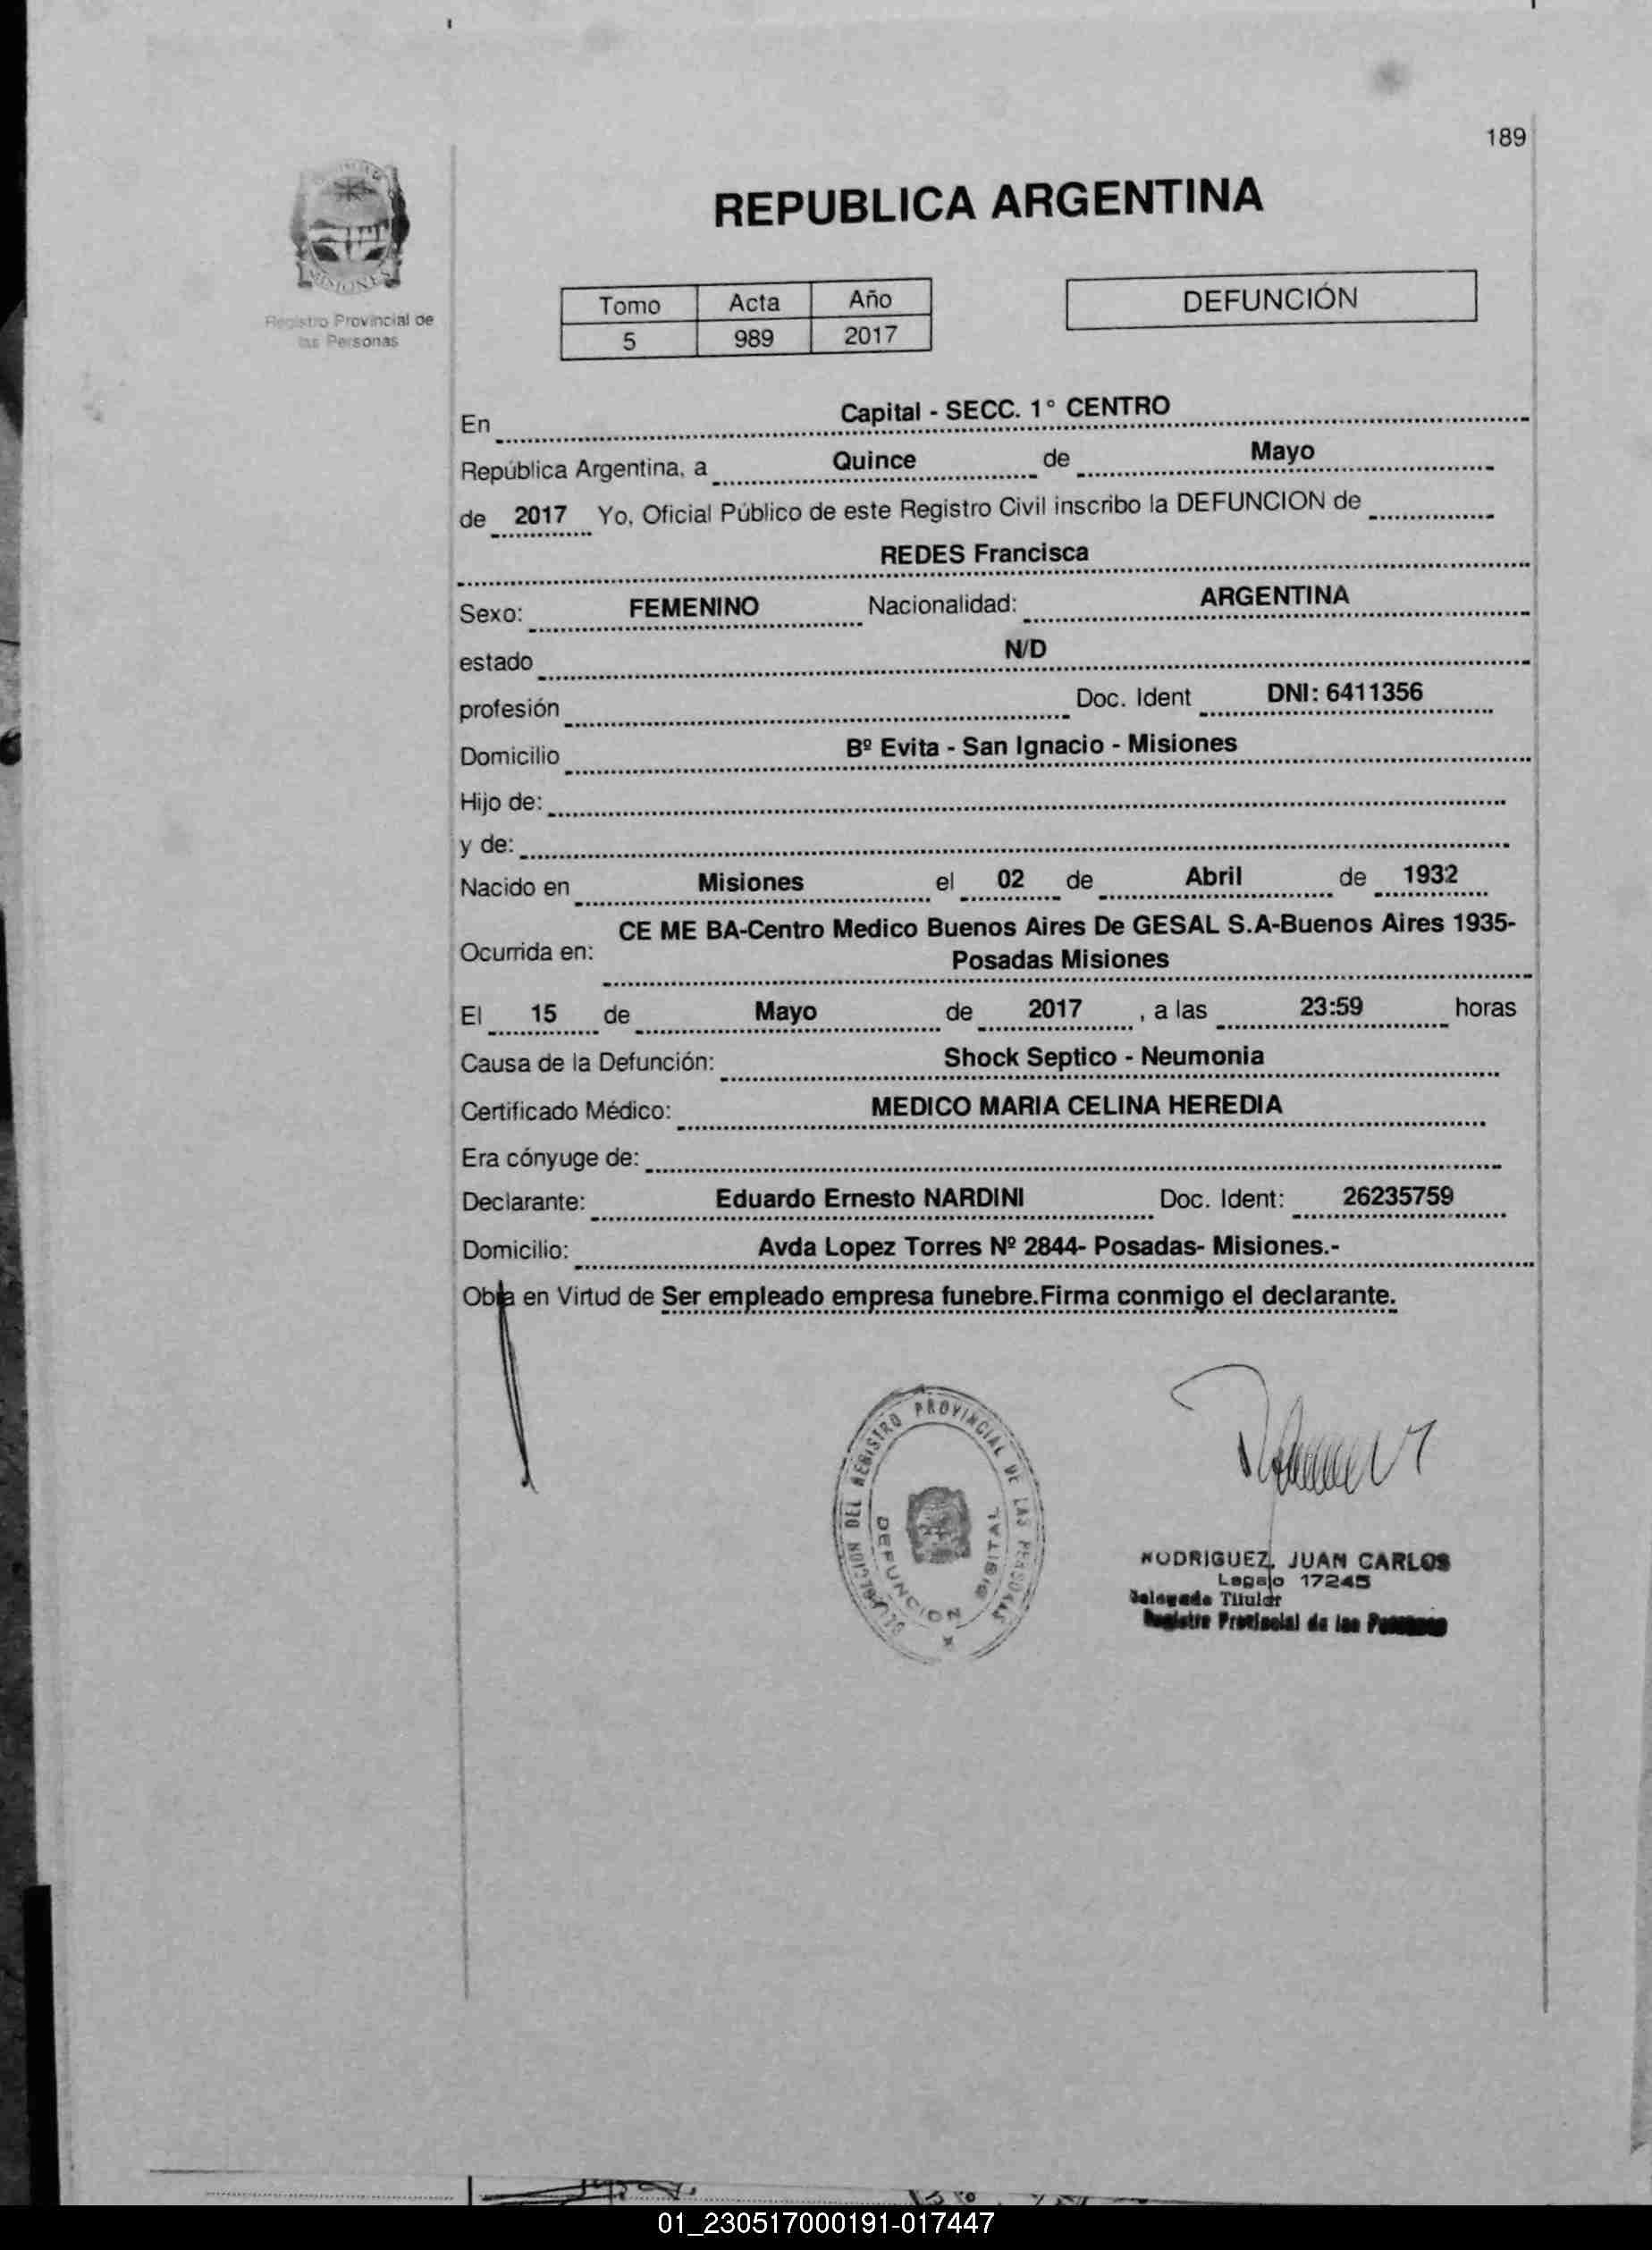 189
REPUBLICA ARGENTINA
Registro Provincial de
las Personas
Tomo Acta Año
5 989 2017
DEFUNCIÓN
En Capital - SECC. 1° CENTRO
República Argentina, a Quince de Mayo
de 2017 Yo, Oficial Público de este Registro Civil inscribo la DEFUNCION de
REDES Francisca
Sexo: FEMENINO Nacionalidad: ARGENTINA
estado N/D
profesión Doc. Ident DNI: 6411356
Domicilio Bº Evita - San Ignacio - Misiones
Hijo de:
y de:
Nacido en Misiones el 02 de Abril de 1932
Ocurrida en: CE ME BA-Centro Medico Buenos Aires De GESAL S.A-Buenos Aires 1935-
Posadas Misiones
El 15 de Mayo de 2017 , a las 23:59 horas
Causa de la Defunción: Shock Septico - Neumonia
Certificado Médico: MEDICO MARIA CELINA HEREDIA
Era cónyuge de:
Declarante: Eduardo Ernesto NARDINI Doc. Ident: 26235759
Domicilio: Avda Lopez Torres Nº 2844- Posadas- Misiones.-
Obra en Virtud de Ser empleado empresa funebre.Firma conmigo el declarante.
DEL REGISTRO PROVINCIAL DE LAS PERSONAS
DEFUNCION DIGITAL
RODRIGUEZ, JUAN CARLOS
Legajo 17245
Delegado Titular
Registro Provincial de las Personas
01_230517000191-017447